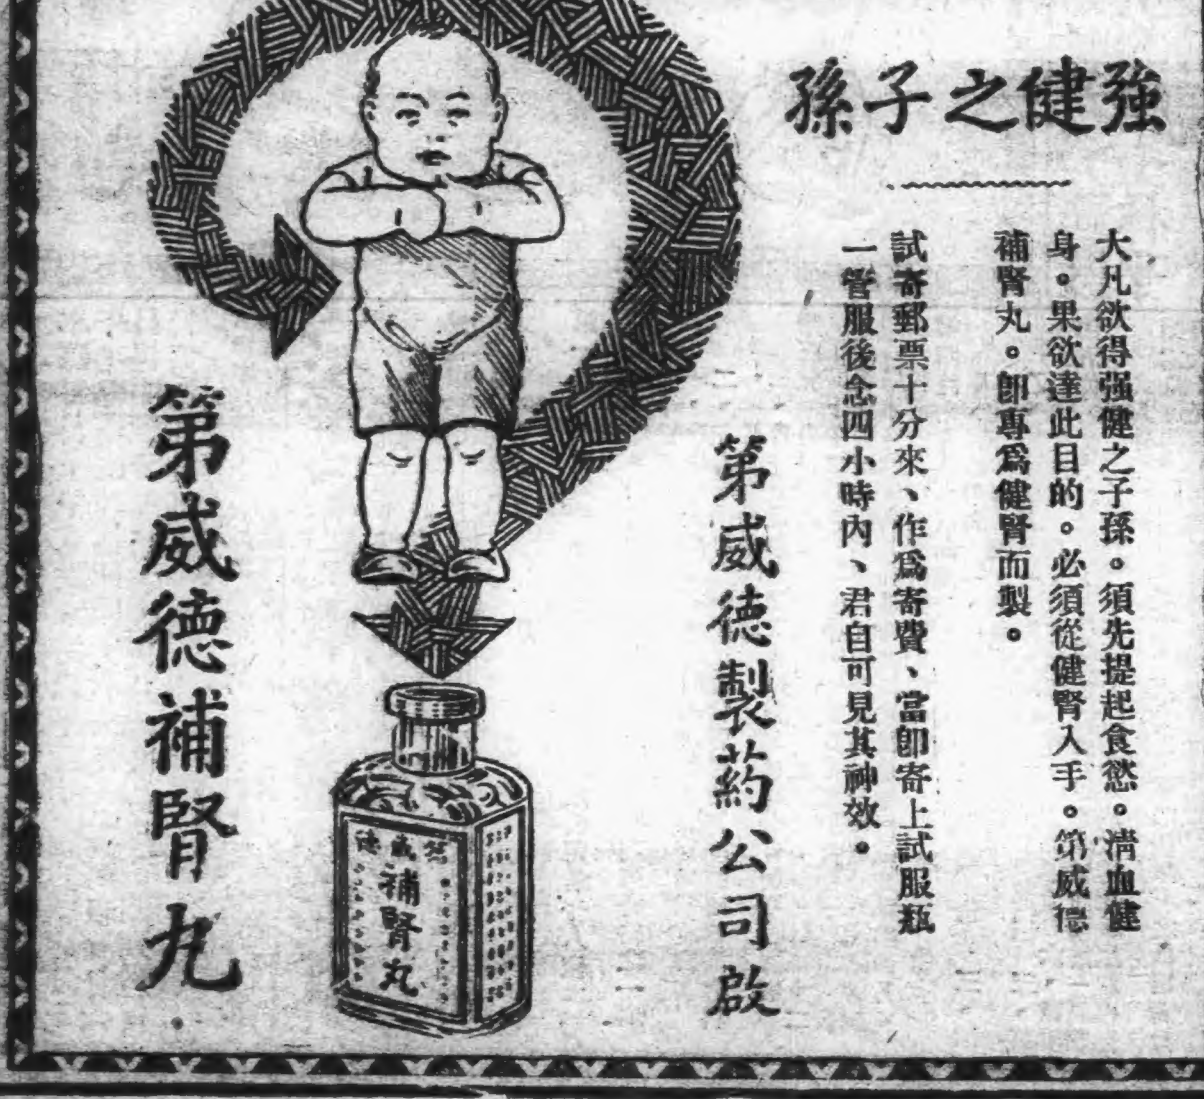 強健之子孫
大凡欲得强健之子孫。須先提起食慾。清血健
身。果欲達此目的。必須從健腎入手。第威德
補腎丸。卽專爲健腎而製。
試寄郵票十分來、作爲寄費、當卽寄上試服瓶
一管服後念四小時內、君自可見其神效。
第威德製葯公司啟
第威德
補腎丸
第威德補腎丸